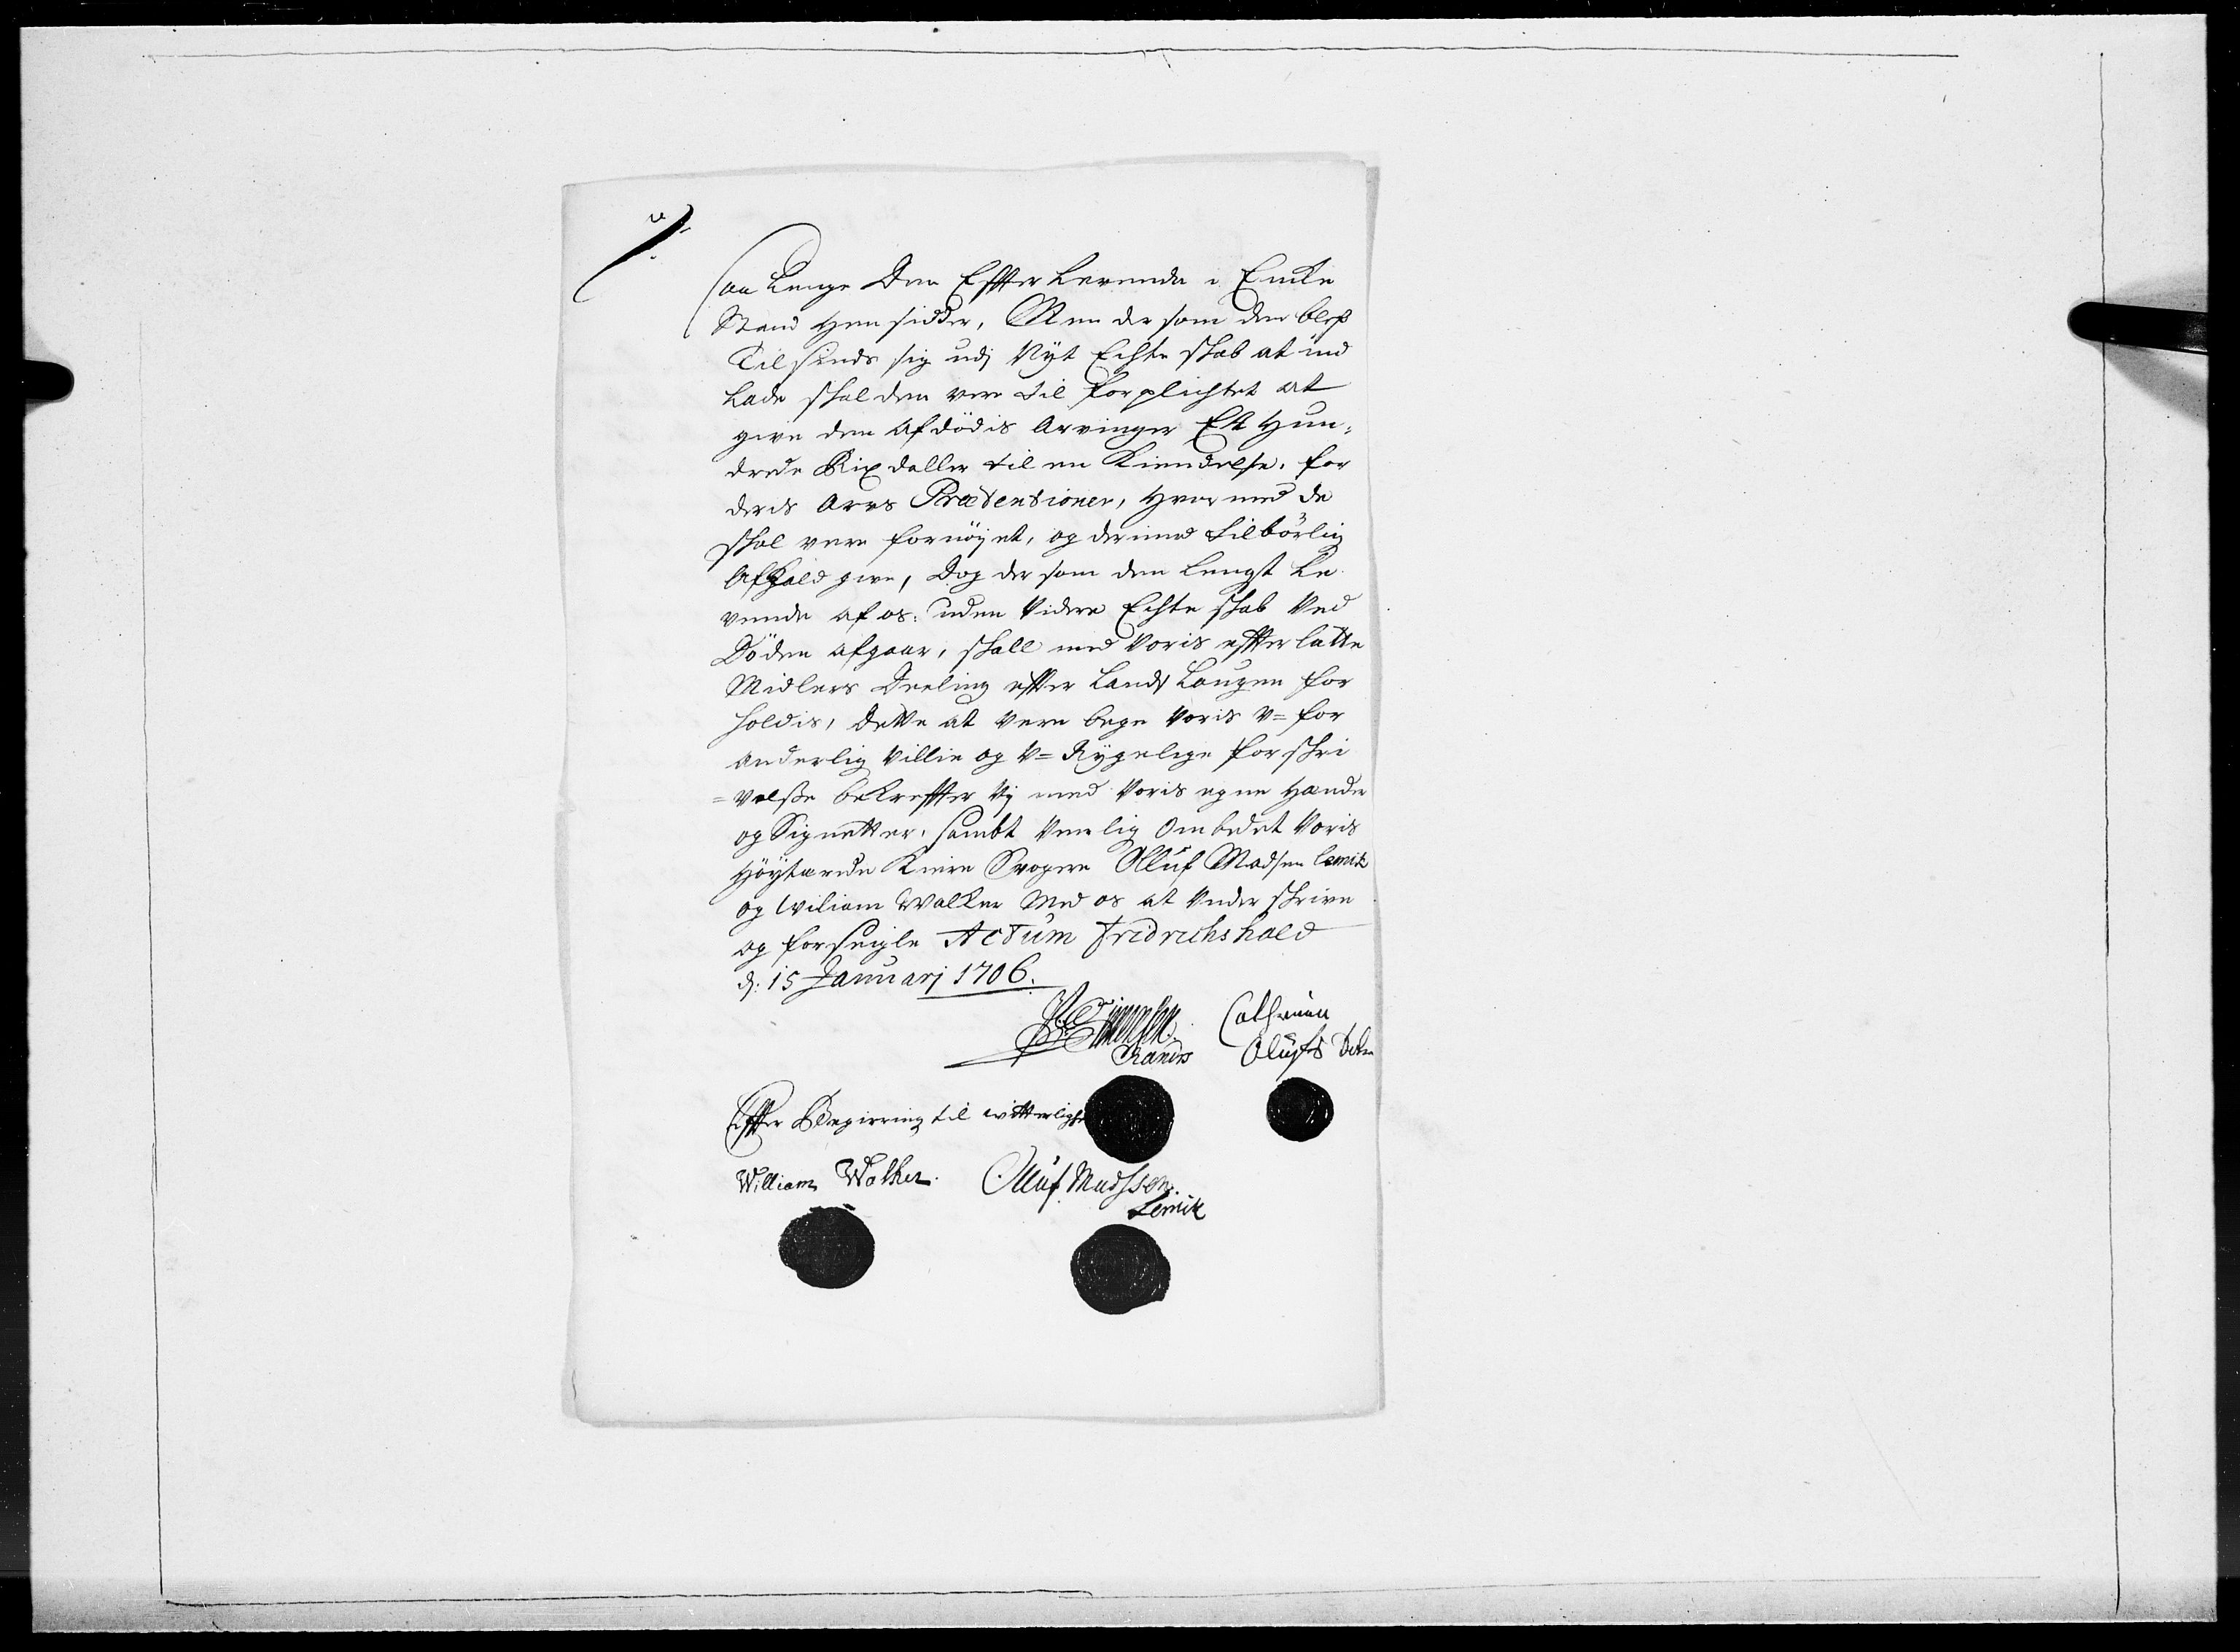 Saa Lenge Den Effter Levende i Encke
Stand Hen sidder, Men der som den blef
Til sinds sig udj Nyt Echte skab at ind
Lade skal den vere til forplichtet at
give den Afdödis Arvinger Ett Hun-
drede Rix daller til en Kiendelse, for
deris Arvs Prætentioner, Hvor med de
skal vere fornöyet, og dermed tilbörlig
Afkald give, Dog der som den Lengst Le
vende af os: uden Videre Echte skab Ved
Döden afgaar, skall med Voris effterlatte
Midlers Deeling effter Lands Laugen for
holdis, Dette at Vere begge Voris V= for
anderlig Villie og V= Ryggelige forskri
= velsse bekreffter Vj med Voris egne Hænder
og Signetter, sambt Venlig Ombedet Voris
Höytærede Kiere Svogere Olluf Madsen Lemik
og Wiliam Walker Med os at Under skrive
og forseigle Actum Fridrichshald
d: 15 Januarj 1706.
Catharina
Rands Olüfs Daater
Effter Begiering til witterlighed
William Walker. Olluf Madssen.
Lemik